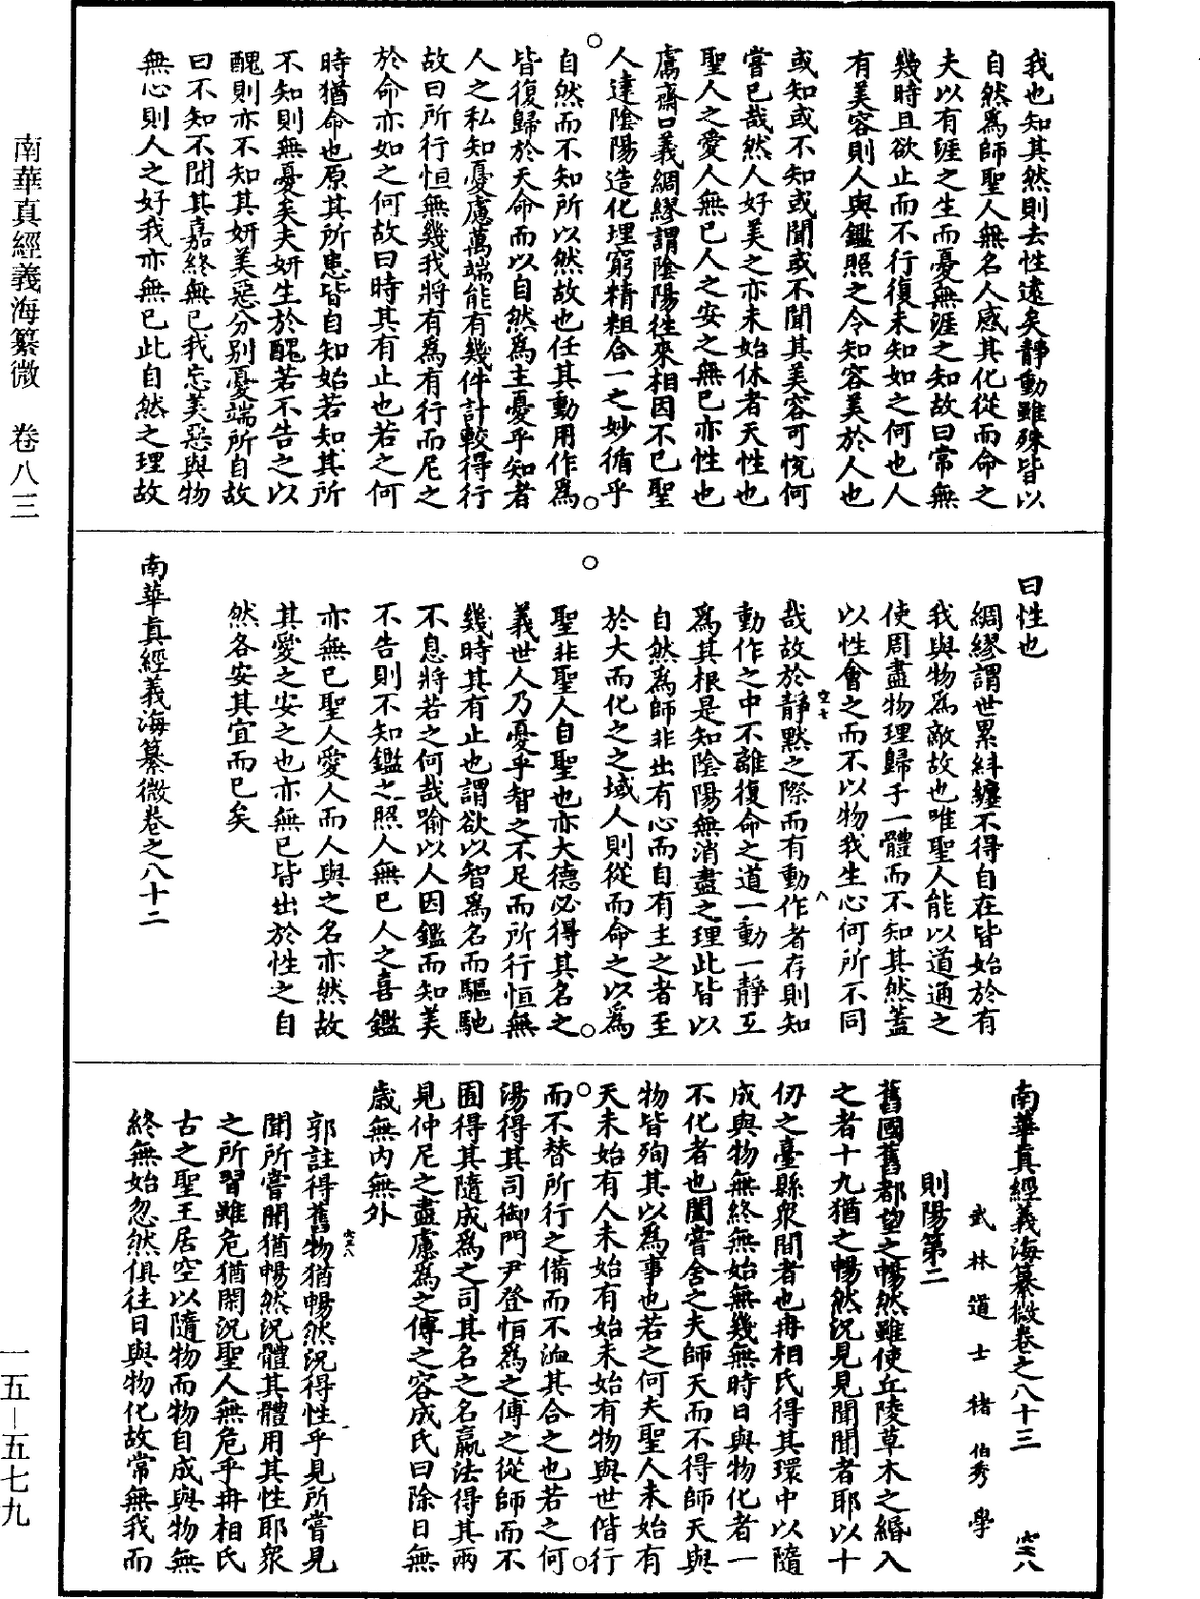 南華真經義海纂微　卷八三
我也知其然則去性遠矣靜動雖殊皆以
自然爲師聖人無名人感其化從而命之
夫以有涯之生而憂無涯之知故曰常無
幾時且欲止而不行復未知如之何也人
有美容則人與鑑照之令知容美於人也
或知或不知或聞或不聞其美容可悅何
嘗已哉然人好美之亦未始休者天性也
聖人之愛人無已人之安之無已亦性也
鬳齋口義綢繆謂陰陽往來相因不已聖
人達陰陽造化理窮精粗合一之妙循乎
自然而不知所以然故也任其動用作爲
皆復歸於天命而以自然爲主憂乎知者
人之私知憂慮萬端能有幾件計較得行
故曰所行恒無幾我將有爲有行而尼之
於命亦如之何故曰時其有止也若之何
時猶命也原其所患皆自知始若知其所
不知則無憂矣夫妍生於醜若不告之以
醜則亦不知其妍美惡分別憂端所自故
曰不知不聞其嘉終無已我忘美惡與物
無心則人之好我亦無已此自然之理故
曰性也
綢繆謂世累紏纏不得自在皆始於有
我與物爲敵故也唯聖人能以道通之
使周盡物理歸于一體而不知其然蓋
以性會之而不以物我生心何所不同
哉故於靜默之際而有動作者存則知
動作之中不離復命之道一動一靜互
爲其根是知陰陽無消盡之理此皆以
自然爲師非出有心而自有主之者至
於大而化之之域人則從而命之以爲
聖非聖人自聖也亦大德必得其名之
義世人乃憂乎智之不足而所行恒無
幾時其有止也謂欲以智爲名而驅馳
不息將若之何哉喻以人因鑑而知美
不告則不知鑑之照人無已人之喜鑑
亦無已聖人愛人而人與之名亦然故
其愛之安之也亦無已皆出於性之自
然各安其宜而已矣
南華真經義海纂微卷之八十二
南華真經義海纂微卷之八十三
武林道士褚伯秀學
則陽第二
舊國舊都望之暢然雖使丘陵草木之緡入
之者十九猶之暢然況見見聞聞者耶以十
仞之臺縣衆間者也冉相氏得其環中以隨
成與物無終無始無幾無時日與物化者一
不化者也闔嘗舍之夫師天而不得師天與
物皆殉其以爲事也若之何夫聖人未始有
天未始有人未始有始未始有物與世偕行
而不替所行之備而不洫其合之也若之何
湯得其司御門尹登恒爲之傅之從師而不
囿得其隨成爲之司其名之名嬴法得其兩
見仲尼之盡慮爲之傅之容成氏曰除日無
歲無內無外
郭註得舊物猶暢然況得性乎見所嘗見
聞所嘗聞猶暢然況體其體用其性耶衆
之所習雖危猶閑況聖人無危乎冉相氏
古之聖王居空以隨物而物自成與物無
終無始忽然俱往日與物化故常無我而
一五—五七九